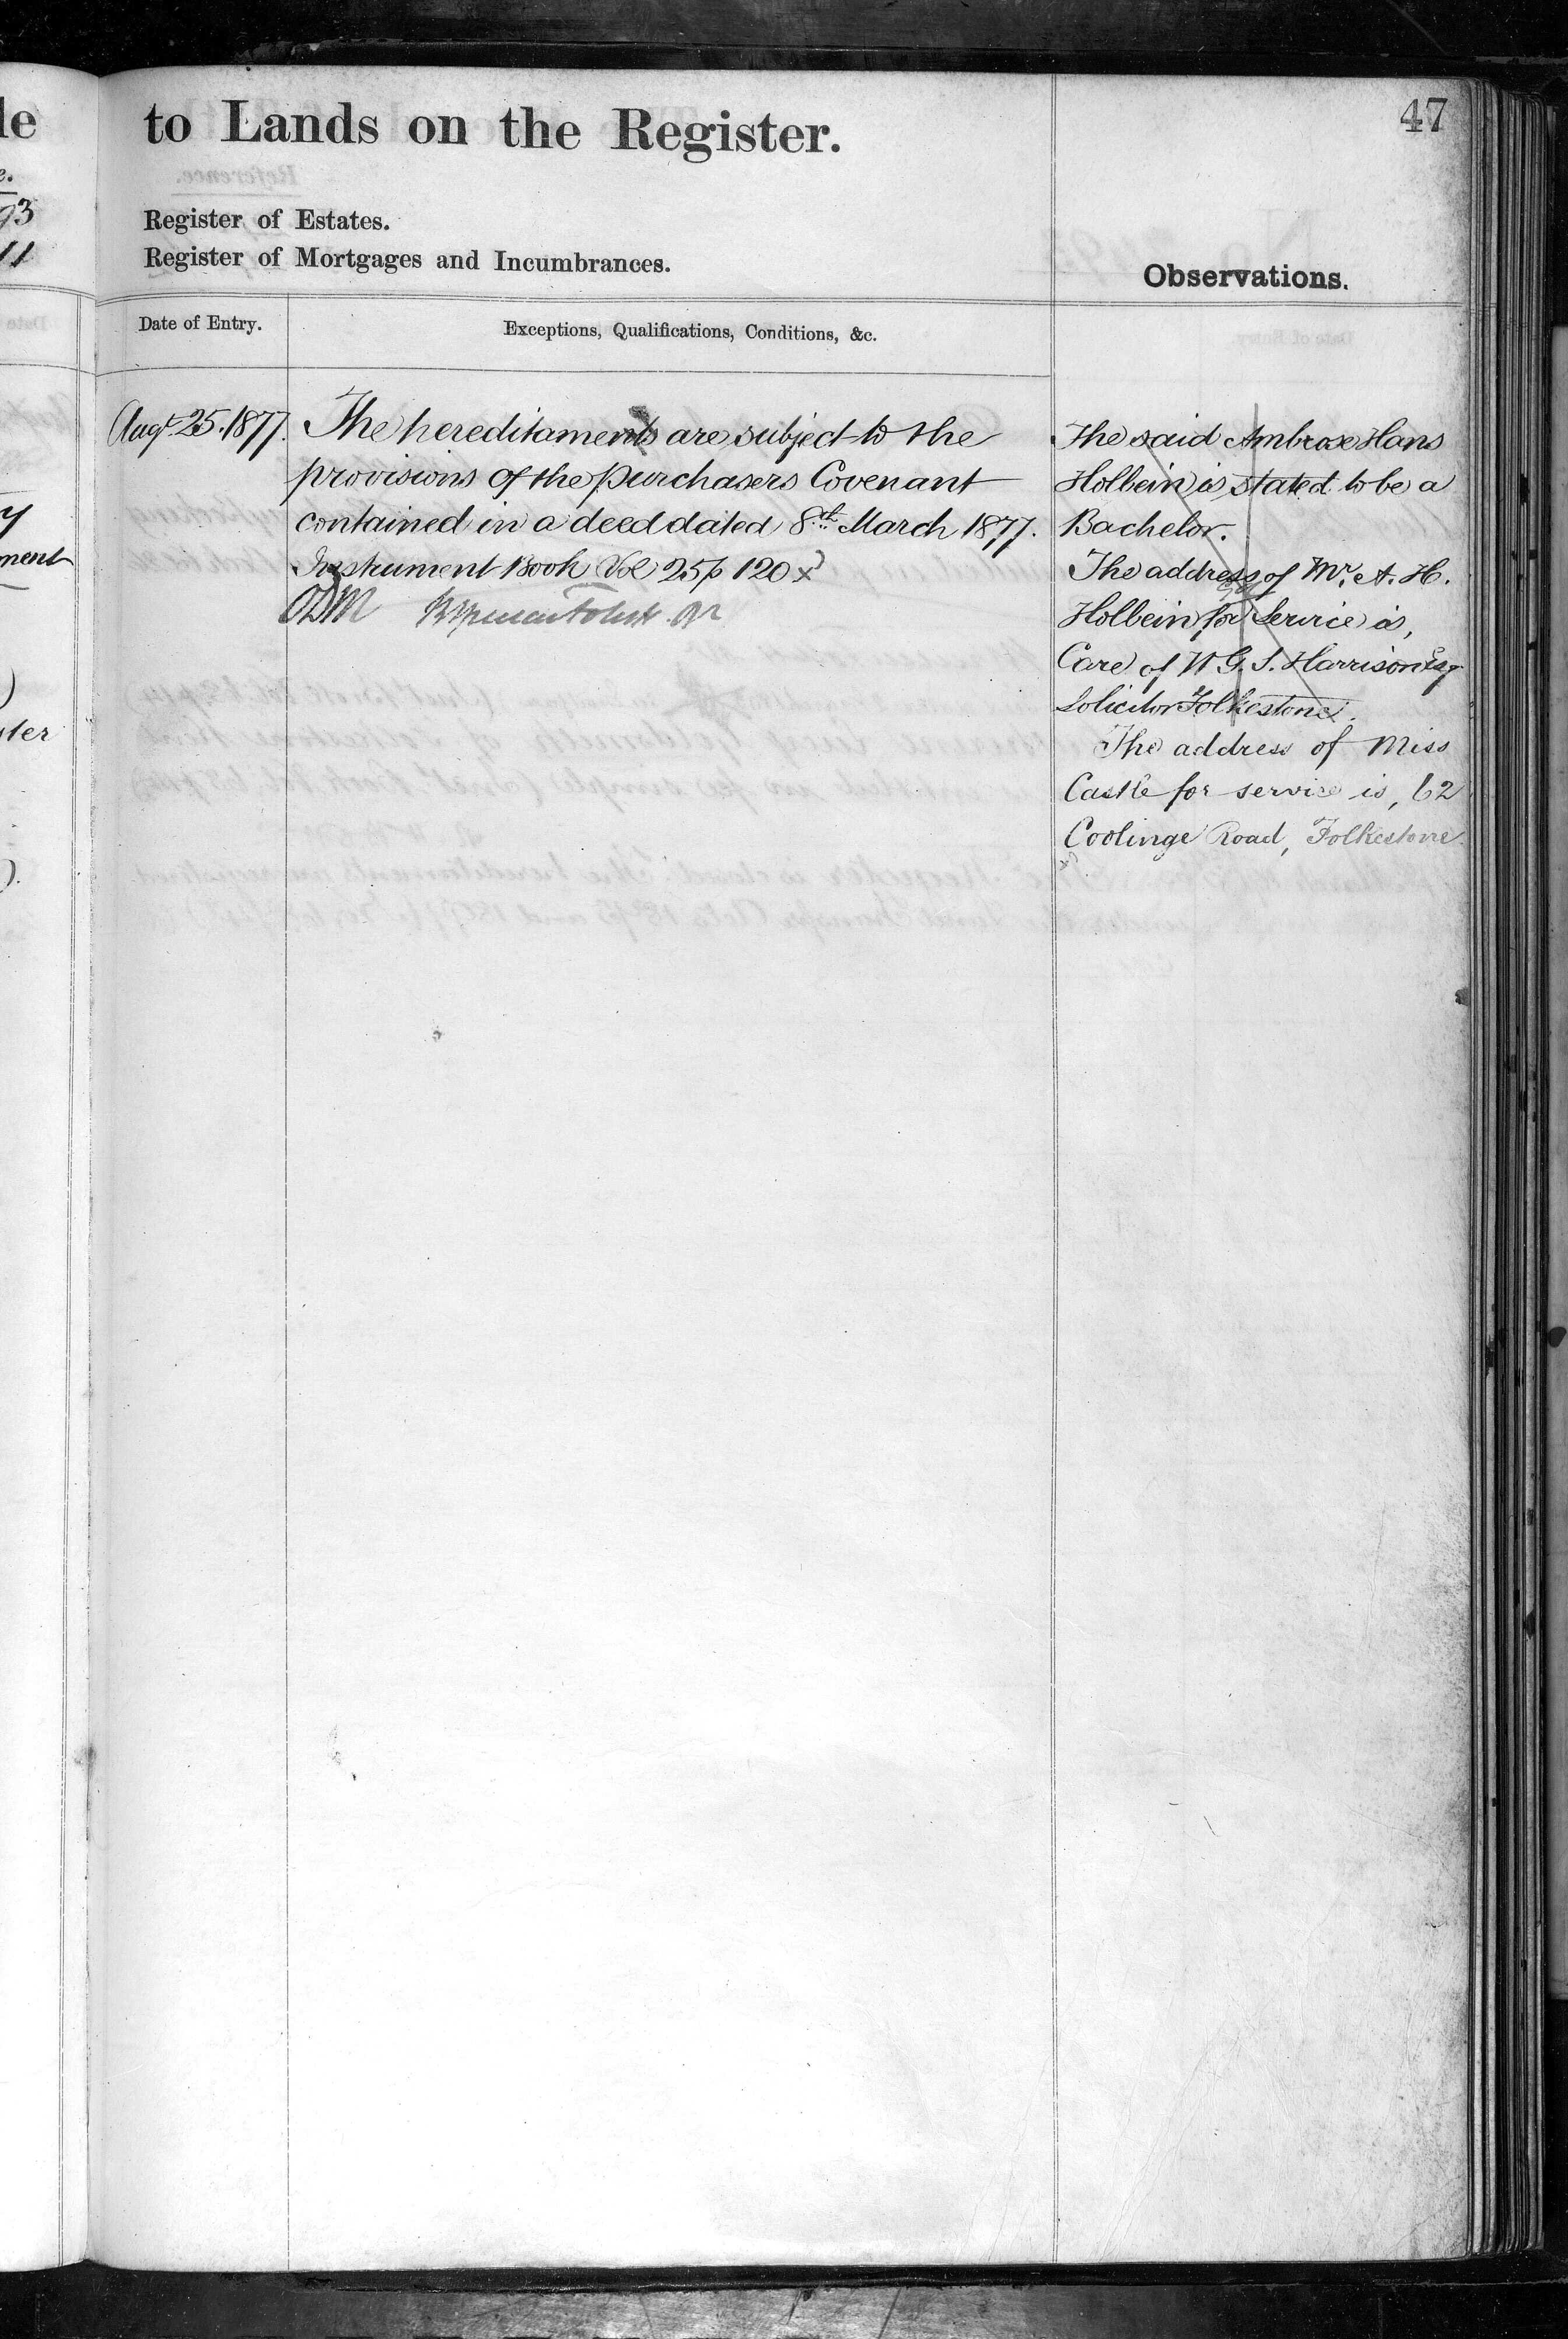 47
to Lands on the Register.
Register of Estates.
Register of Mortgages and Incumbrances.
Observations.
Date of Entry.
Exceptions, Qualifications, Conditions, &c.
Augt. 25. 1877.
The hereditaments are subject to the
provisions of the purchasers Covenant
contained in a deed dated 8th March 1877.
Instrument Book Vol 25 p 120 x
The said Ambrose Hans
Holbein is stated to be a
Bachelor.
The address of Mr. A. H.
Holbein for Service is,
Care of W G. S. Harrison Esq
Solicitor Folkestone.
The address of Miss
Castle for service is, 62
Coolinge Road, Folkestone.
le
e.
93
11
y
ment
ster